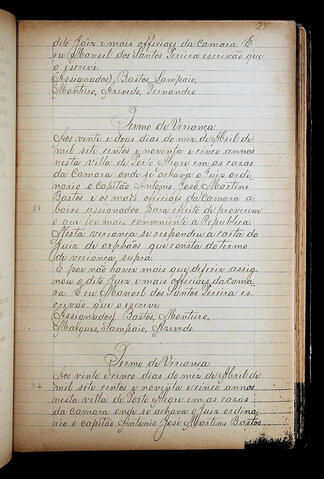 25.
dito Juiz e mais officiais da Camara. E
eu Manoel dos Santos Pereira escrivão que
o escrevi.
(Assignados) Bastos, Sampaio,
Monteiro, Azevedo, Fernandes.
Termo de Veriança
Aos vinte e dous dias do mez de Abril de
mil sete centos e noventa e cinco annos
nesta villa de Porto Alegre em as cazas
da Camara onde se achava o Juiz ordi
nario o capitão Antonio José Martins
Bastos e os mais officiais da Camara a
baixo assignados para effeito de proverem
o que fosse mais conveniente á Republica
Nesta veriança se respondeu à carta do
Juiz de orphãos que consta do termo
de veriança supra.
E por não haver mais que diferir assig
nou o dito Juiz e mais officiaes da cama
ra. E eu Manoel dos Santos Pereira es
crivão que o escrevi
Assignados, Bastos, Monteiro,
Marques, Sampaio, Azevedo.
Termo de Veriança
Aos vinte e cinco dias do mez de Abril de
mil sete centos e noventa e cinco annos
nesta villa de Porto Alegre em as cazas
da Camara onde se achava o Juiz ordina
rio o capitão Antonio José Martins Bastos